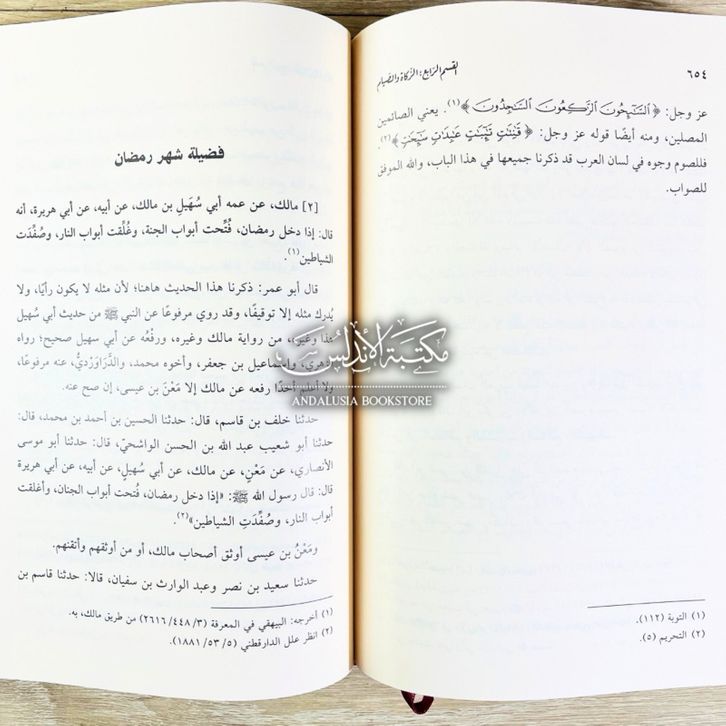 ٦٥٤
القسم الرابع: الزكاة والصيام
عز وجل: ﴿السَّائِحُونَ الرَّاكِعُونَ السَّاجِدُونَ﴾(١). يعني الصائمين
المصلين، ومنه أيضًا قوله عز وجل: ﴿قَانِتَاتٍ تَائِبَاتٍ عَابِدَاتٍ سَائِحَاتٍ﴾(٢).
فللصوم وجوه في لسان العرب قد ذكرنا جميعها في هذا الباب، والله الموفق
للصواب.
(١) التوبة (١١٢).
(٢) التحريم (٥).
فضيلة شهر رمضان
[٢] مالك، عن عمه أبي سُهَيلِ بن مالك، عن أبيه، عن أبي هريرة، أنه
قال: إذا دخل رمضان، فُتِّحت أبواب الجنة، وغُلِّقت أبواب النار، وصُفِّدَت
الشياطين(١).
قال أبو عمر: ذكرنا هذا الحديث هاهنا؛ لأن مثله لا يكون رأيًا، ولا
يُدرك مثله إلا توقيفًا، وقد روي مرفوعًا عن النبي ﷺ من حديث أبي سُهيل
هذا وغيره، من رواية مالك وغيره، ورفْعُه عن أبي سهيل صحيح؛ رواه
الزهري، وإسماعيل بن جعفر، وأخوه محمد، والدَّرَاوَرْديُّ، عنه مرفوعًا،
ولا أعلم أحدًا رفعه عن مالك إلا مَعْنَ بن عيسى، إن صح عنه.
مكتبة الأندلس
ANDALUSIA BOOKSTORE
حدثنا خلف بن قاسم، قال: حدثنا الحسين بن أحمد بن محمد، قال:
حدثنا أبو شعيب عبد الله بن الحسن الواشحيُّ، قال: حدثنا أبو موسى
الأنصاري، عن مَعْنٍ، عن مالك، عن أبي سُهيلٍ، عن أبيه، عن أبي هريرة
قال: قال رسول الله ﷺ: «إذا دخل رمضان، فُتحت أبواب الجنان، وأغلقت
أبواب النار، وصُفِّدَتِ الشياطين»(٢).
ومَعْنُ بن عيسى أوثق أصحاب مالك، أو من أوثقهم وأتقنهم.
حدثنا سعيد بن نصر وعبد الوارث بن سفيان، قالا: حدثنا قاسم بن
(١) أخرجه: البيهقي في المعرفة (٣/٤٤٨/٢٦١٦) من طريق مالك، به.
(٢) انظر علل الدارقطني (٥/٥٣/١٨٨١).